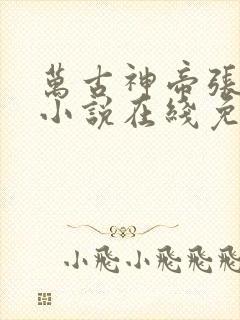 萬古神帝張
小說在綫免
小飛小飛飛飛